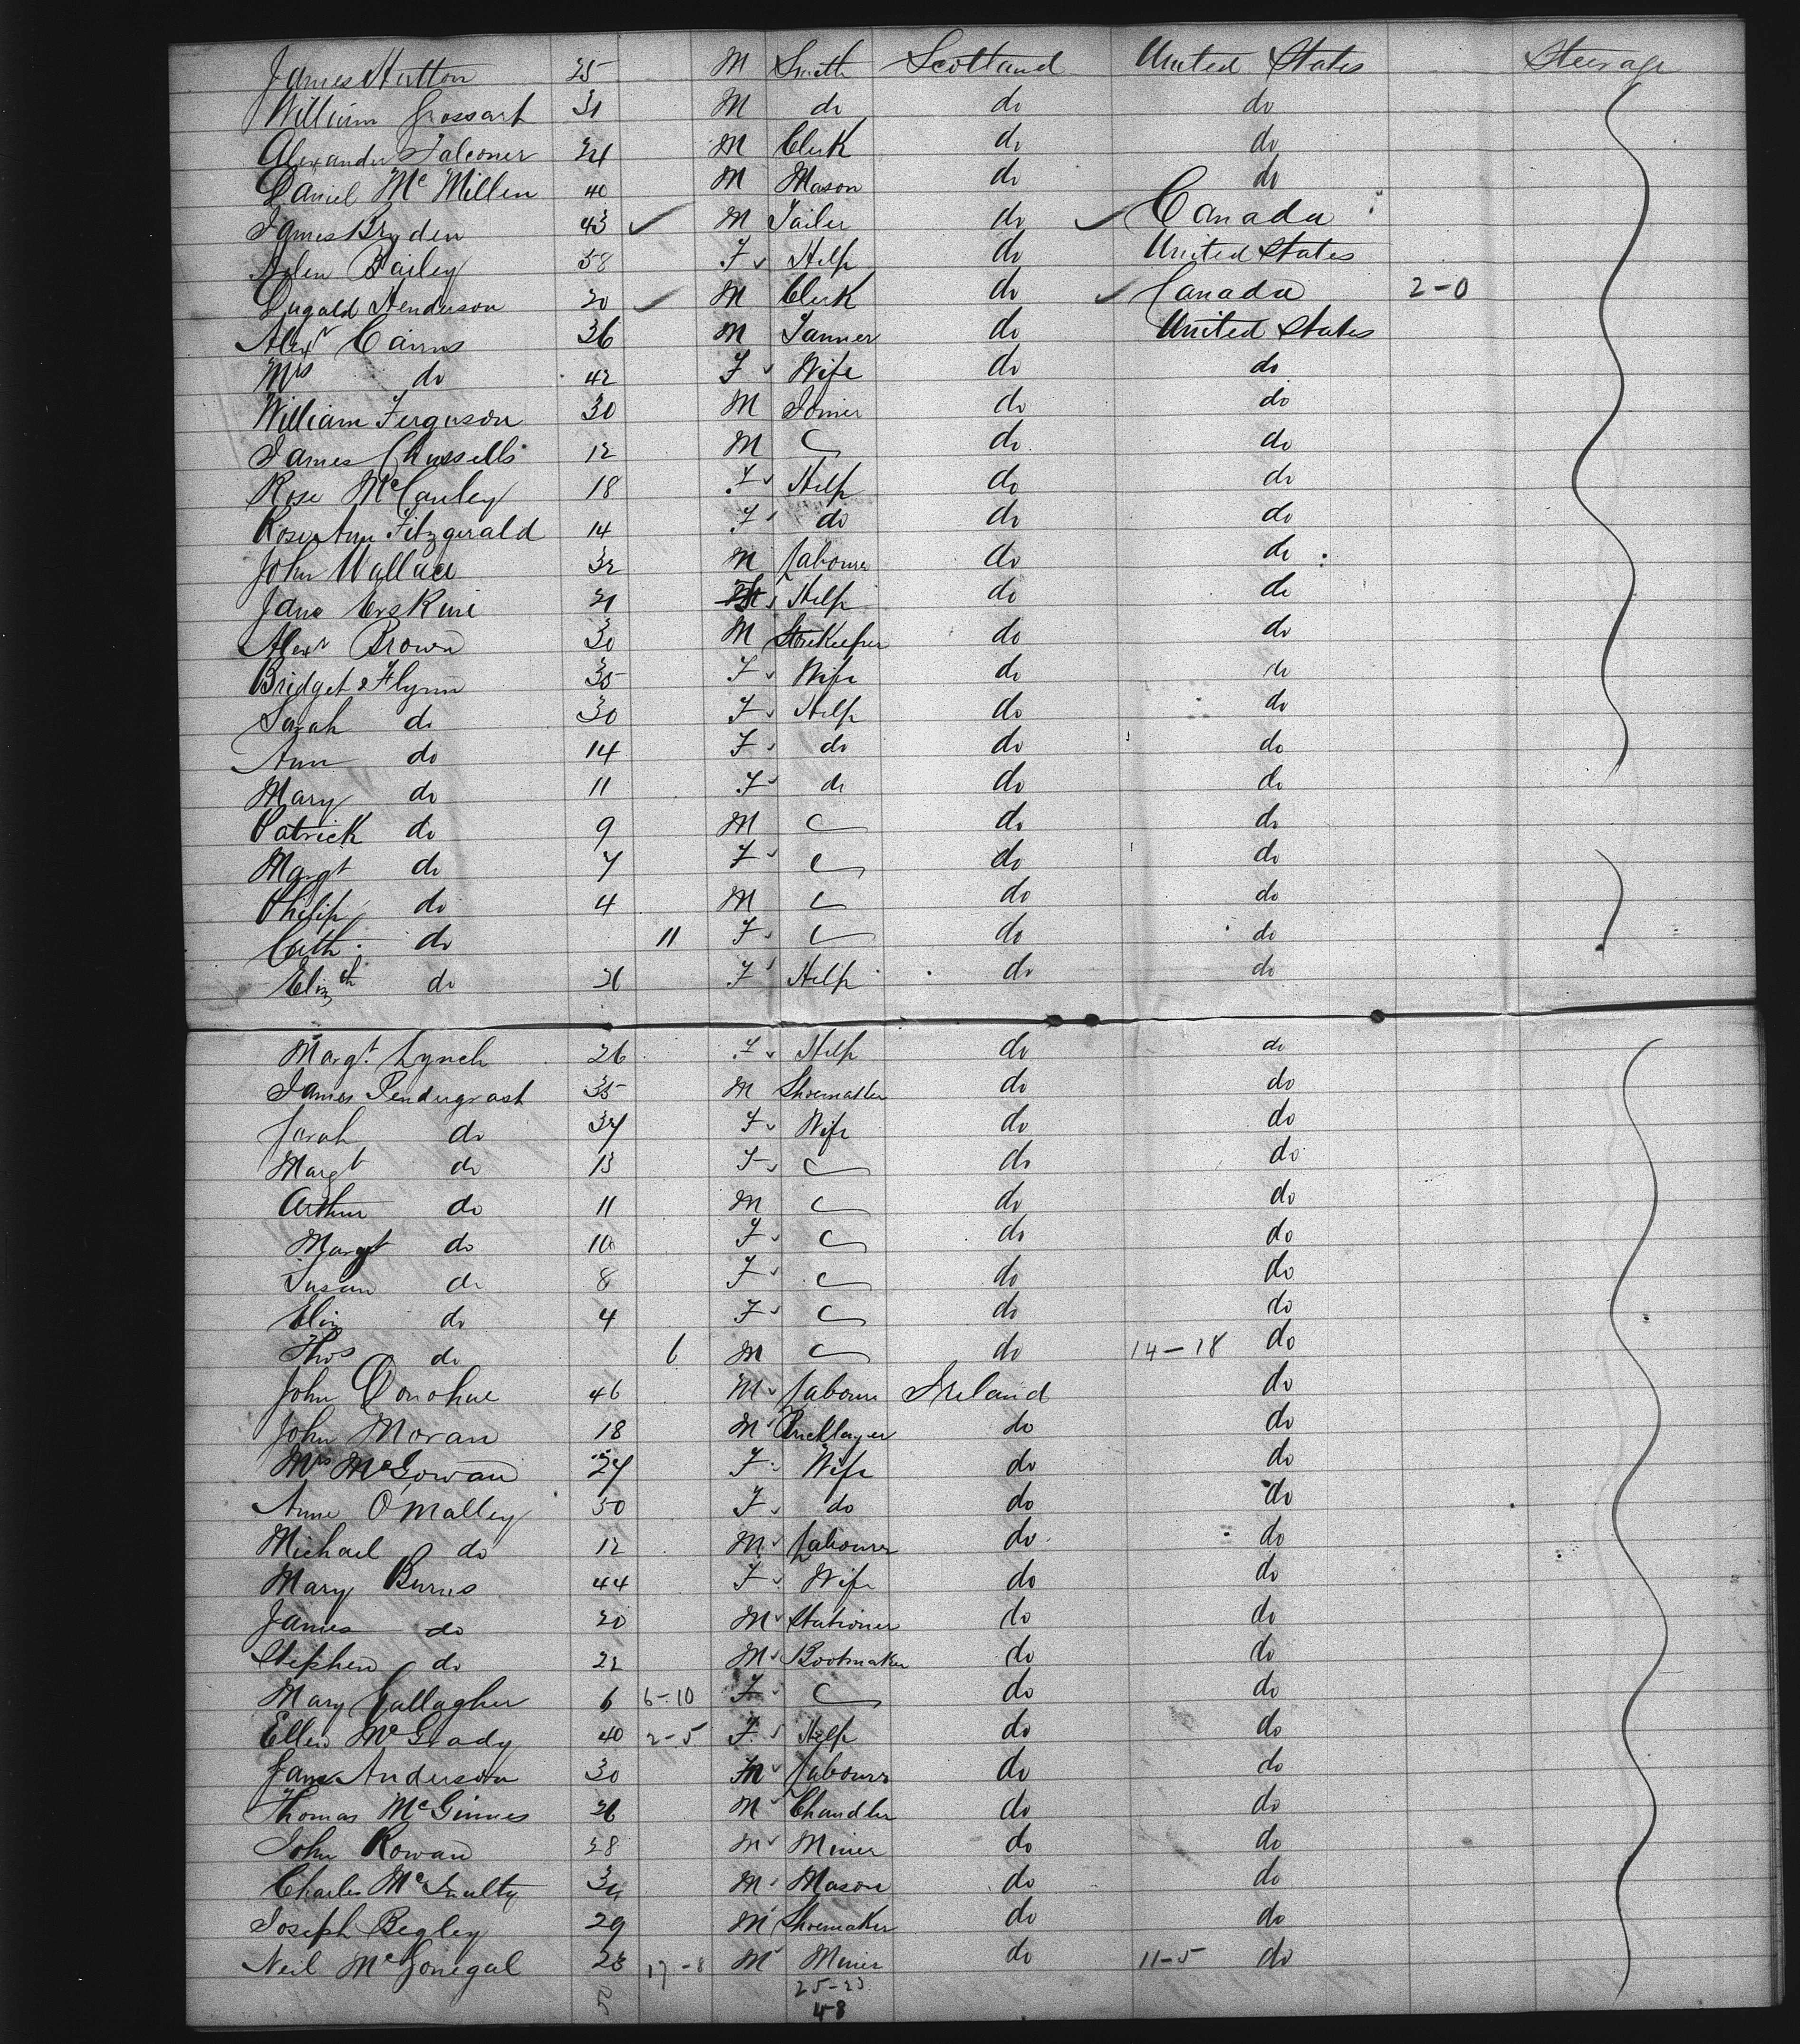 James Hutton 25 M Smith Scotland United States Steerage
William Grossart 31 M do do do
Alexander Falconer 24 M Clerk do do
Daniel Mc Millen 40 M Mason do do
James Bryden 43 ✓ M Tailer do ✓ Canada
Helen Bailey 58 F ✓ Help do United States
Dugald Henderson 20 ✓ M Clerk do ✓ Canada 2-0
Alexr Cairns 36 M Tanner do United States
Mrs do 42 F ✓ Wife do do
William Ferguson 30 M Joiner do do
James 12 M do do
Rose McCauley 18 F ✓ Help do do
Rose Ann Fitzgerald 14 F ✓ do do do
John Wallace 32 M Labourer do do
Jane Erskine 21 F ✓ Help do do
Alexr Brown 30 M Storekeeper do do
Bridget Flynn 35 F ✓ Wife do do
Sarah do 30 F ✓ Help do do
Ann do 14 F ✓ do do do
Mary do 11 F ✓ do do do
Patrick do 9 M do do
Margt do 7 F ✓ do do
Philip do 4 M do do
Cath. do 11 F ✓ do do
Elizth do F ✓ Help do do
Margt. Lynch 26 F ✓ Help do do
James Pendergrast 35 M Shoemaker do do
Sarah do 34 F ✓ Wife do do
Margt do 13 F ✓ do do
Arthur do 11 M do do
Margt do 10 F ✓ do do
Susan do 8 F ✓ do do
Eliz do 4 F ✓ do do
Thos do 6 M do 14-18 do
John Donohue 46 M ✓ Labourer Ireland do
John Moran 18 M ✓ Bricklayer do do
Mrs McGowan 24 F ✓ Wife do do
Anne O'Malley 50 F ✓ do do do
Michael do 12 M ✓ Labourer do do
Mary Burns 44 F ✓ Wife do do
James do 20 M ✓ Stationer do do
Stephen do 22 M ✓ Bootmaker do do
Mary Gallagher 6 6-10 F ✓ do do
Ellen McGrady 40 2-5 F ✓ Help do do
Jane Anderson 30 M ✓ Labourer do do
Thomas McGinnes 26 M ✓ Chandler do do
John Rowan 28 M ✓ Miner do do
Charles McNulty M ✓ Mason do do
Joseph Begley 29 M ✓ Shoemaker do do
Neil McGonegal 23 17-8 M ✓ Miner do 11-5 do
25-23
48